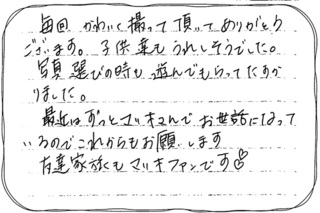 毎回 かわいく撮って頂いてありがとう
ございます。子供達もうれしそうでした。
写真選びの時も遊んでもらってたすか
りました。
最近はずっとマッキさんでお世話になって
いるのでこれからもお願いします
友達家族もマッキファンです♡